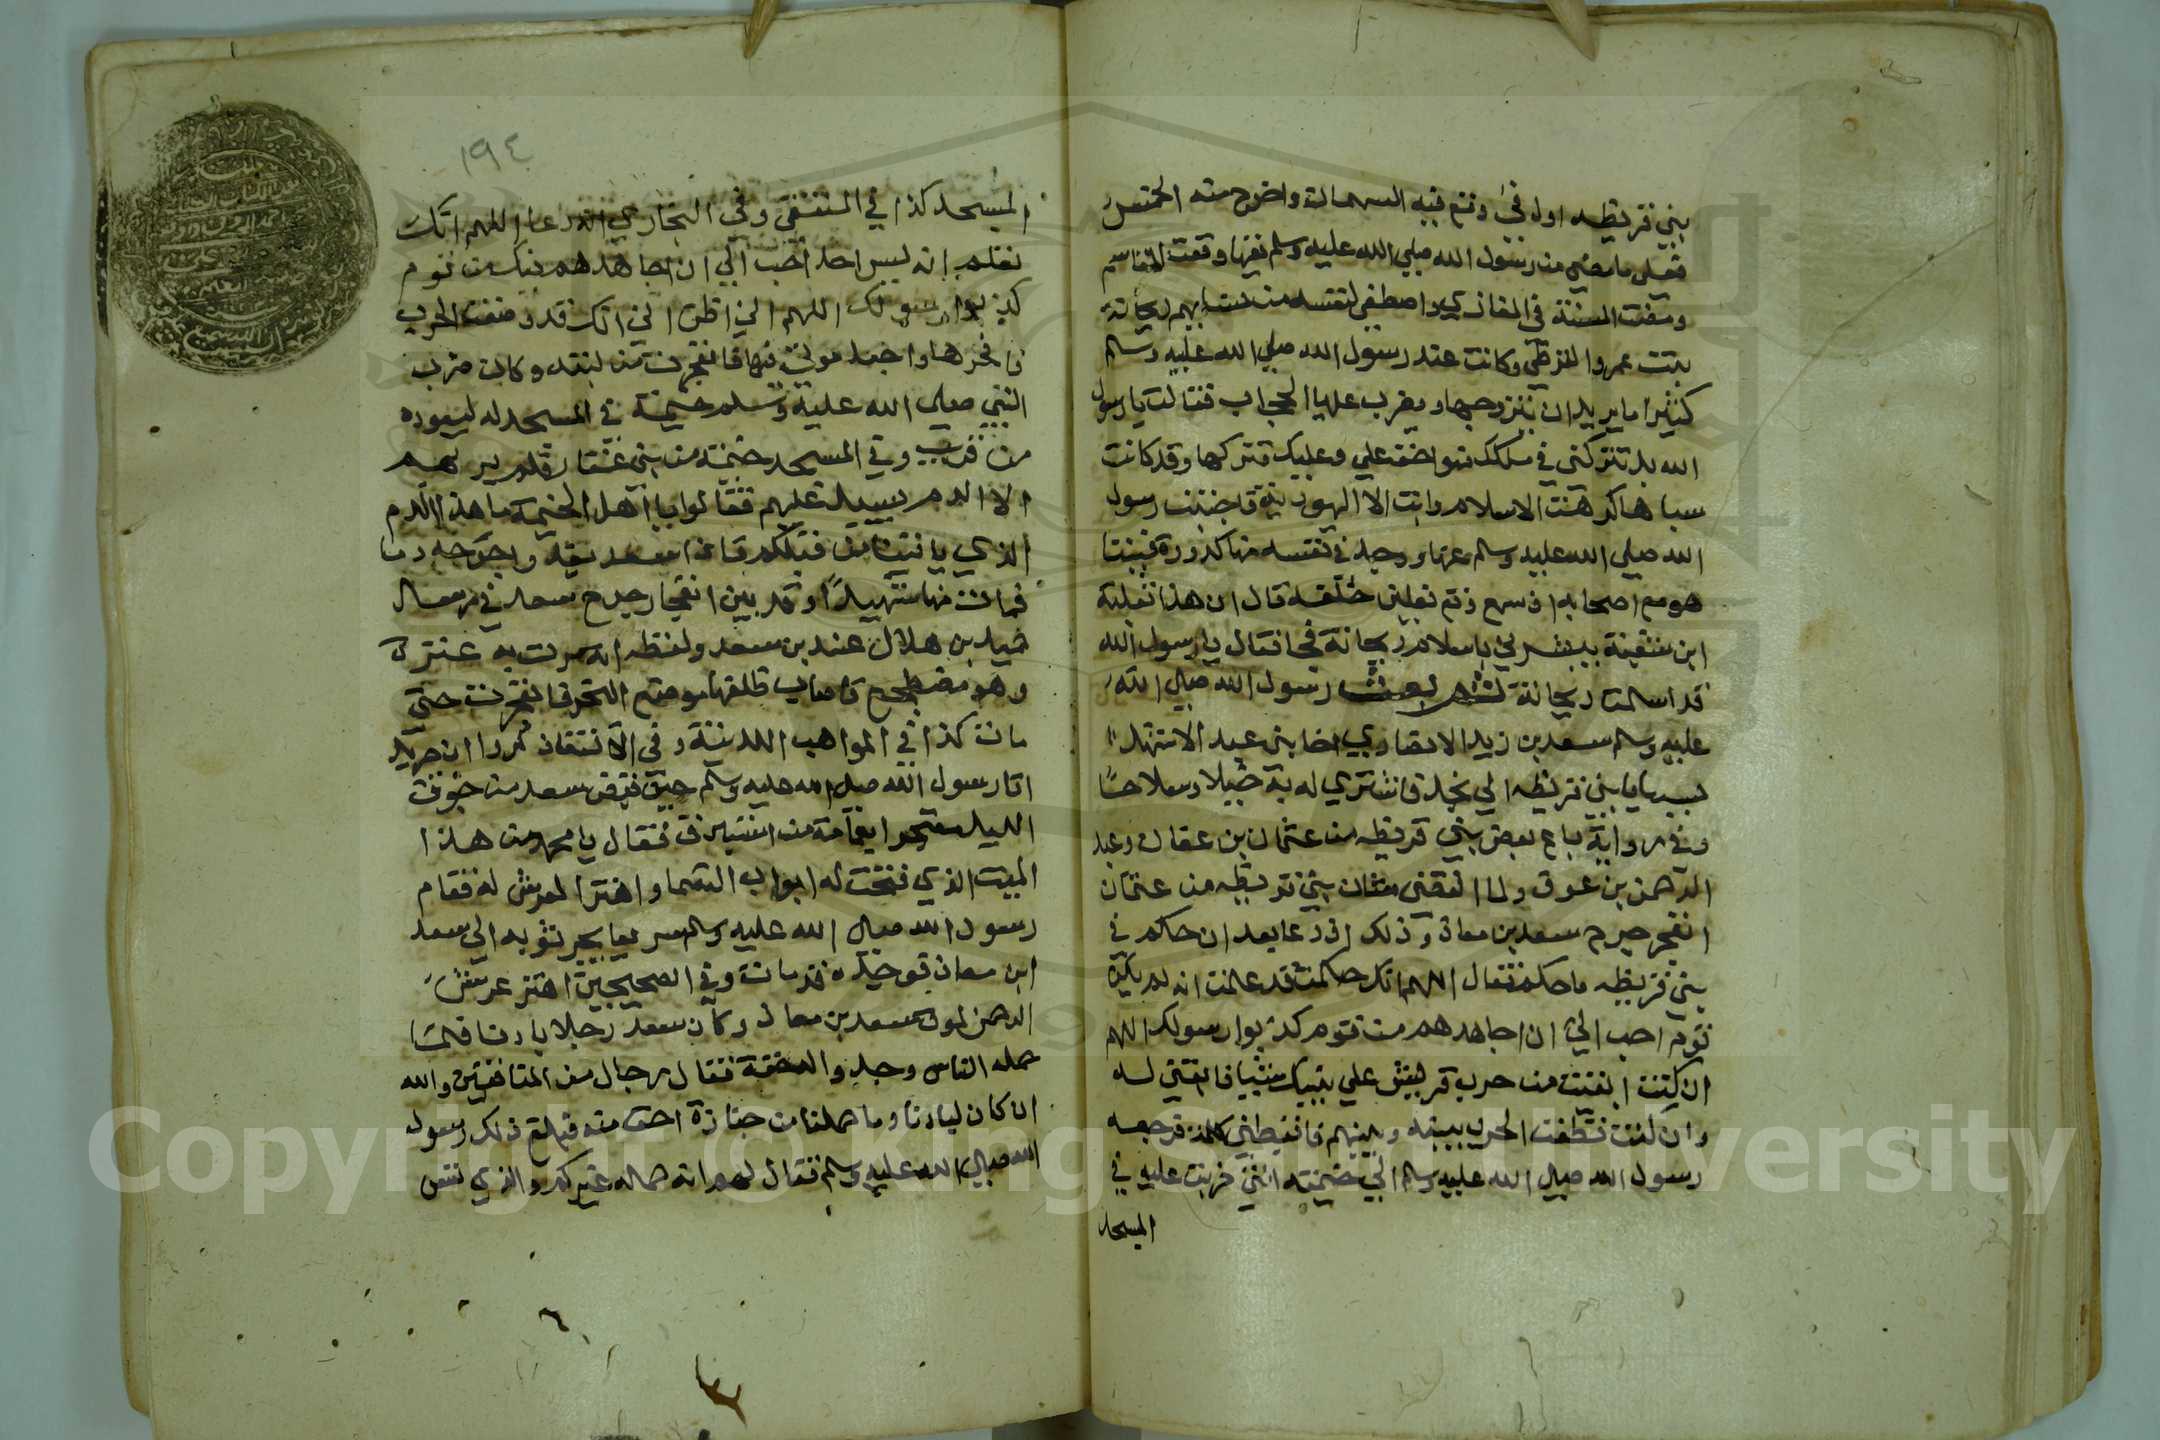 بني قريظه اول فئ وقع فيه السهمان واخرج منه الخمس
فعلى ما مضى من رسول الله صلى الله عليه وسلم فيها وقعت المقاسم
ومضت السنة في المغازي واصطفى لنفسه من نسايهم ريحانة
بنت عمرو القرظي وكانت عند رسول الله صلى الله عليه وسلم
كثيرا ما يريد ان يتزوجها ويضرب عليها الحجاب فقالت يا رسول
الله بل تتركني في ملكك فهو اخف علي وعليك فتركها وقد كانت
سباها كرهت الاسلام وابت الا اليهودية فاجتنب رسول
الله صلى الله عليه وسلم عنها ووجد في نفسه منها كدورة فبينما
هو مع اصحابه اذ سمع وقع نعلين خلفه قال ان هذا ثعلبة
ابن شعبة يبشرني باسلام ريحانة فجا فقال يا رسول الله
قد اسلمت ريحانة ثم بعث رسول الله صلى الله
عليه وسلم سعد بن زيد الانصاري اخا بني عبد الاشهل
بسبايا بني قريظه الى نجد فاشترى له به خيلا وسلاحا
وفي رواية باع بعض بني قريظه من عثمان بن عفان وعبد
الرحمن بن عوف ولما انقضى شان بني قريظه من عثمان
انفجر جرح سعد بن معاذ وذلك انه دعا بعد ان حكم في
بني قريظه ما حكم فقال اللهم انك قد علمت انه لم يكن
قوم احب الي ان اجاهدهم من قوم كذبوا رسولك اللهم
ان كنت ابقيت من حرب قريش على نبيك شيا فابقني له
وان كنت قطعت الحرب بينه وبينهم فاقبضني فرجعه
رسول الله صلى الله عليه وسلم الى خيمته التي ضربت عليه في
المسجد
١٩٤
المسجد كذا في المنتقى وفي البخاري انه دعا اللهم انك
تعلم انه ليس احد احب الي ان اجاهدهم فيك من قوم
كذبوا رسولك اللهم اني اظن انك قد وضعت الحرب
فافجرها واجعل موتي فيها فانفجرت من لبته وكان ضرب
النبي صلى الله عليه وسلم خيمة في المسجد له ليعوده
من قريب وفي المسجد خيمة من بني غفار فلم يرعهم
الا الدم يسيل عليهم فقالوا يا اهل الخيمة ما هذا الدم
الذي ياتينا من قبلكم فاذا سعد يغذو جرحه دما
فمات منها شهيدا وقد بين انفجار جرح سعد في مرسال
حميد بن هلال عند بن سعد ولفظه انه مرت به عنزة
وهو مضطجع فاصاب ظلفها موضع النحر فانفجرت حتى
مات كذا في المواهب اللدنية وفي الاكتفا ذكروا ان جبريل
اتا رسول الله صلى الله عليه وسلم حين قبض سعد من جوف
الليل معتجرا بعمامة من استبرق فقال يا محمد من هذا
الميت الذي فتحت له ابواب السما واهتز العرش له فقام
رسول الله صلى الله عليه وسلم سريعا يجر ثوبه الى سعد
ابن معاذ فوجده قد مات وفي الصحيحين اهتز عرش
الرحمن لموت سعد بن معاذ وكان سعد رجلا بادنا فلما
حمله الناس وجدوا له خفة فقال رجال من المنافقين والله
ان كان لبادنا وما حملنا من جنازة اخف منه فبلغ ذلك رسول
الله صلى الله عليه وسلم فقال لهم انه حمله غيركم والذي نفس
Copyright © King Saud University